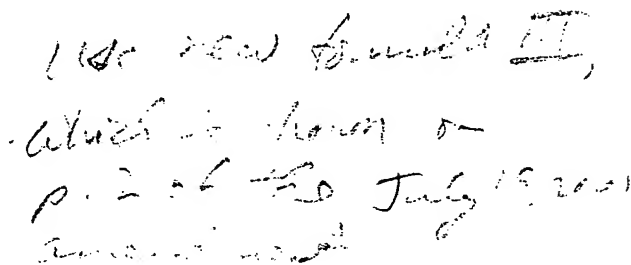 Use new formula III,
which is shown on
p. 2 of the July
amendment